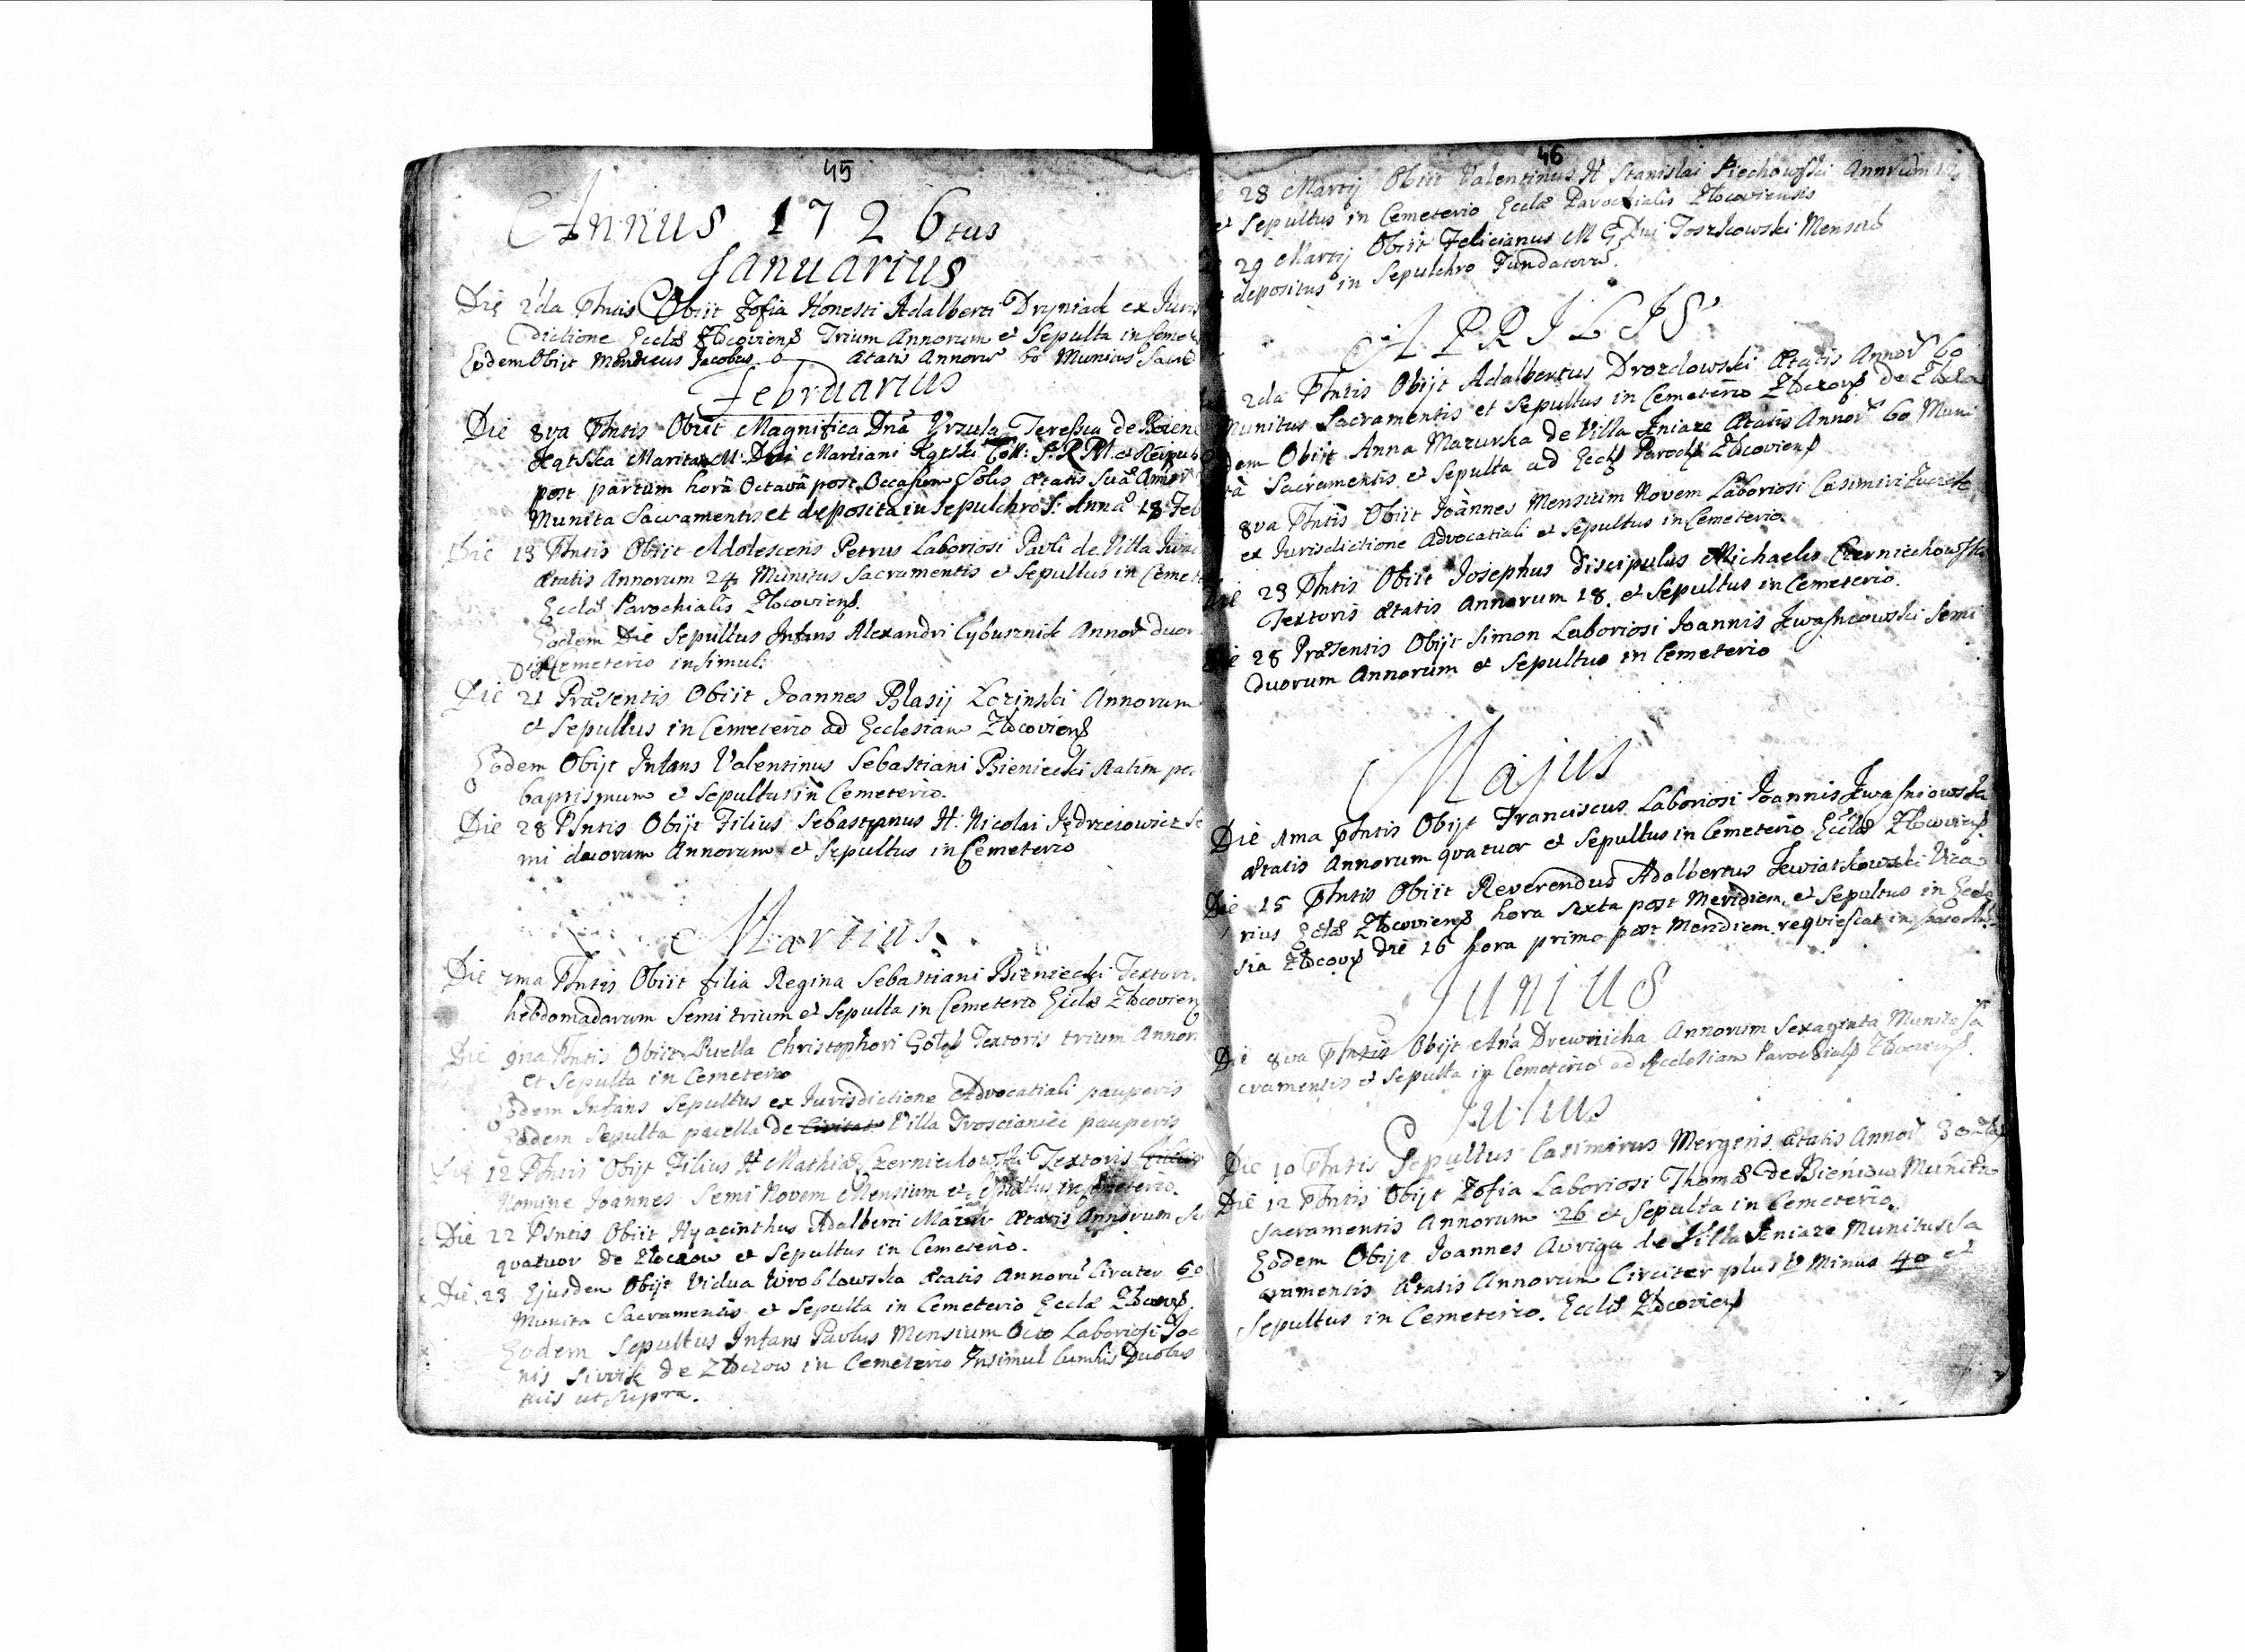 45
Annus 1726tus
Januarius
Die 2da Phntis Obiit Zofia Honesti Adalberti Dryniak ex Juris
dictione Eccla Złocoviens Trium Annorum et Sepulta in Cemet
Eodem Obijt Mendicus Jacobus Ætatis Annoru 60 Munitus Sacra
Februarius
Die 8va Phntis Obiit Magnifica Dna Urzula Teressia de
Marita M. Dni Martiani
post partum hora Octava post Occasum Solis Ætatis Suæ Annor
Munita Sacramentis et deposita in Sepulchro S: Anna 18 Feb
Die 13 Phntis Obiit Adolescens Petrus Laboriosi Pavli de Villa
Ætatis Annorum 24 Munitus Sacramentis et Sepultus in Cemet
Eccla Parochialis Złocoviens.
Eodem Die Sepultus Infans Alexandri Cybusznik Annor duor
Cemeterio insimul:
Die 21 Præsentis Obiit Joannes Blasij Łozinski Annorum
et Sepultus in Cemeterio ad Ecclesiam Złocoviens
Eodem Obijt Infans Valentinus Sebastiani Bieniecki statim po
baptismum et Sepultus in Cemeterio.
Die 28 Phntis Obijt Filius Sebastyanus H: Nicolai Jędrzeiowicz Se
mi duorum Annorum et Sepultus in Cemeterio
Martius
Die 7ma Phntis Obiit filia Regina Sebastiani Bieniecki Textor
hebdomadarum Semi trium et Sepulta in Cemeterio Eccla Złocovien
Die 9na Phntis Obiit Puella Christophori Textoris trium Annor
et Sepulta in Cemeterio
Eodem Infans Sepultus ex Jurisdictione Advocatiali pauperis
Eodem Sepulta puella de Villa Troscianiec pauperis
Die 12 Phntis Obijt Filius H Mathiæ Czerniechowski Textoris
Nomine Joannes Semi Novem Mensium et Sepultus in Cemeterio.
Die 22 Phntis Obiit Hyacinthus Adalberti Ætatis Annorum Se
quatuor de Złoczow et Sepultus in Cemeterio.
Die 23 Ejusdem Obijt Vidua Wroblowska Ætatis Annoru Circiter 60
Munita Sacramentis et Sepulta in Cemeterio Eccla
Eodem Sepultus Infans Pavlus Mensium Octo Laboriosi Joa
nis de Złoczow in Cemeterio Insimul cum his Duobus
tuis ut Supra.
46
28 Martij Obiit Valentinus H Stanislai Piechowski Annrum
et Sepultus in Cemeterio Eccla Parochialis Złocoviensis
29 Martij Obiit Felicianus M G Dni Toszkowski
depositus in Sepulchro Fundatoru.
APRILIS
2da Phntis Obijt Adalbertus Drozdowski Ætatis Annor 60
Munitus Sacramentis et Sepultus in Cemeterio
dem Obijt Anna Mazurka de Villa Jeniaze Ætatis Annor 60 Muni
ta Sacramentis et Sepulta ad Eccla Paroch Złocoviens
8va Phntis Obiit Joannes Mensium Novem Laboriosi Casimiri
ex Jurisdictione Advocatiali et Sepultus in Cemeterio
Die 23 Phntis Obiit Josephus discipulus Michaelis Czerniechowski
Textoris Ætatis Annorum 18. et Sepultus in Cemeterio.
Die 28 Præsentis Obijt Simon Laboriosi Joannis Semi
duorum Annorum et Sepultus in Cemeterio
Majus
Die 1ma Phntis Obijt Franciscus Laboriosi Joannis
Ætatis Annorum quatuor et Sepultus in Cemeterio Eccla Złocoviens
Die 15 Phntis Obiit Reverendus Adalbertus Vica
rius Eccla Złocoviens hora Sexta post Meridiem, et Sepultus in Eccle
sia die 16 hora prima post Meridiem requiescat in
Junius
Die 8va Phntis Obijt Ana Drewnicha Annorum Sexaginta Munita Sa
cramentis et Sepulta in Cemeterio ad Ecclesiam Parochial Złocoviens.
Julius
Die 10 Phntis Sepultus Casimirus Mergens Ætatis Annor 30
Die 12 Phntis Obijt Zofia Laboriosi Thomæ de Bieniow Munita
Sacramentis Annorum 26 et Sepulta in Cemeterio.
Eodem Obijt Joannes Auriga de Villa Jeniaze Munitus Sa
cramentis Ætatis Annorum Circiter plus V Minus 40 et
Sepultus in Cemeterio. Eccla Złocoviens